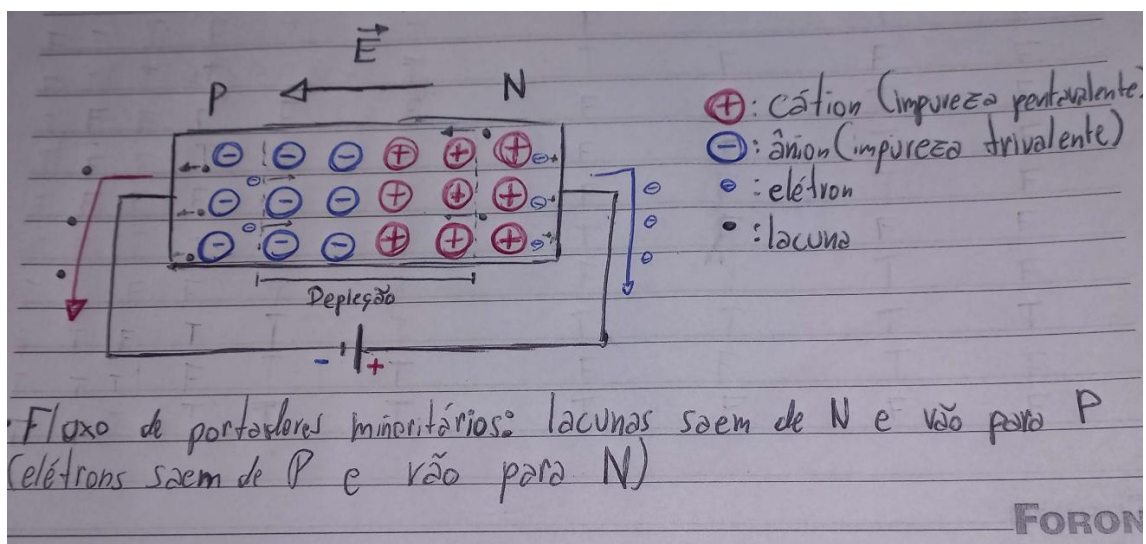 E
P N
⊕: cátion (impureza pentavalente)
⊖: ânion (impureza trivalente)
⊖: elétron
•: lacuna
Depleção
- +
Fluxo de portadores minoritários: lacunas saem de N e vão para P
(elétrons saem de P e vão para N)
FORON